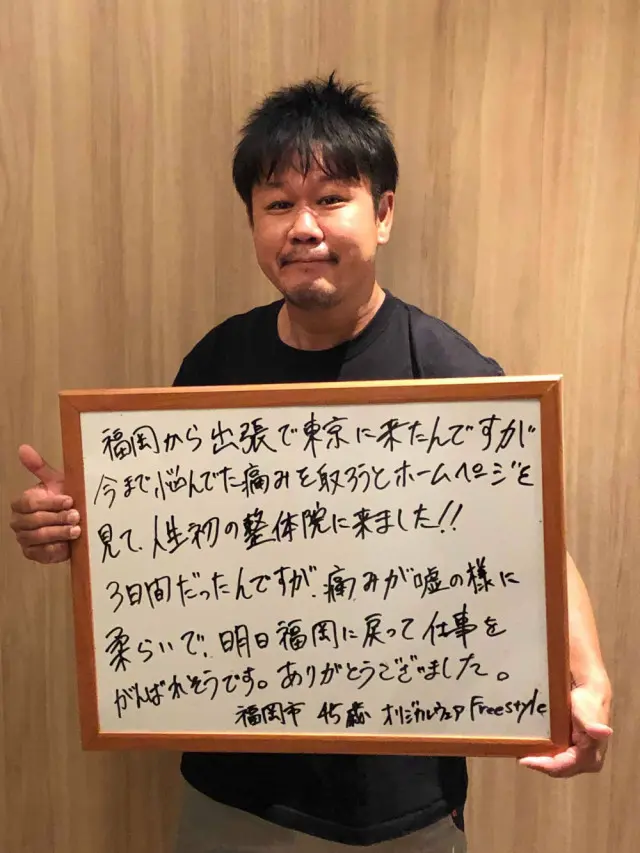 福岡から出張で東京に来たんですが
今まで悩んでた痛みを取ろうとホームページを
見て、人生初の整体院に来ました!!
3日間だったんですが、痛みが嘘の様に
柔らいで、明日福岡に戻って仕事を
がんばれそうです。ありがとうございました。
福岡市 45歳 オリジナルウェア Freestyle